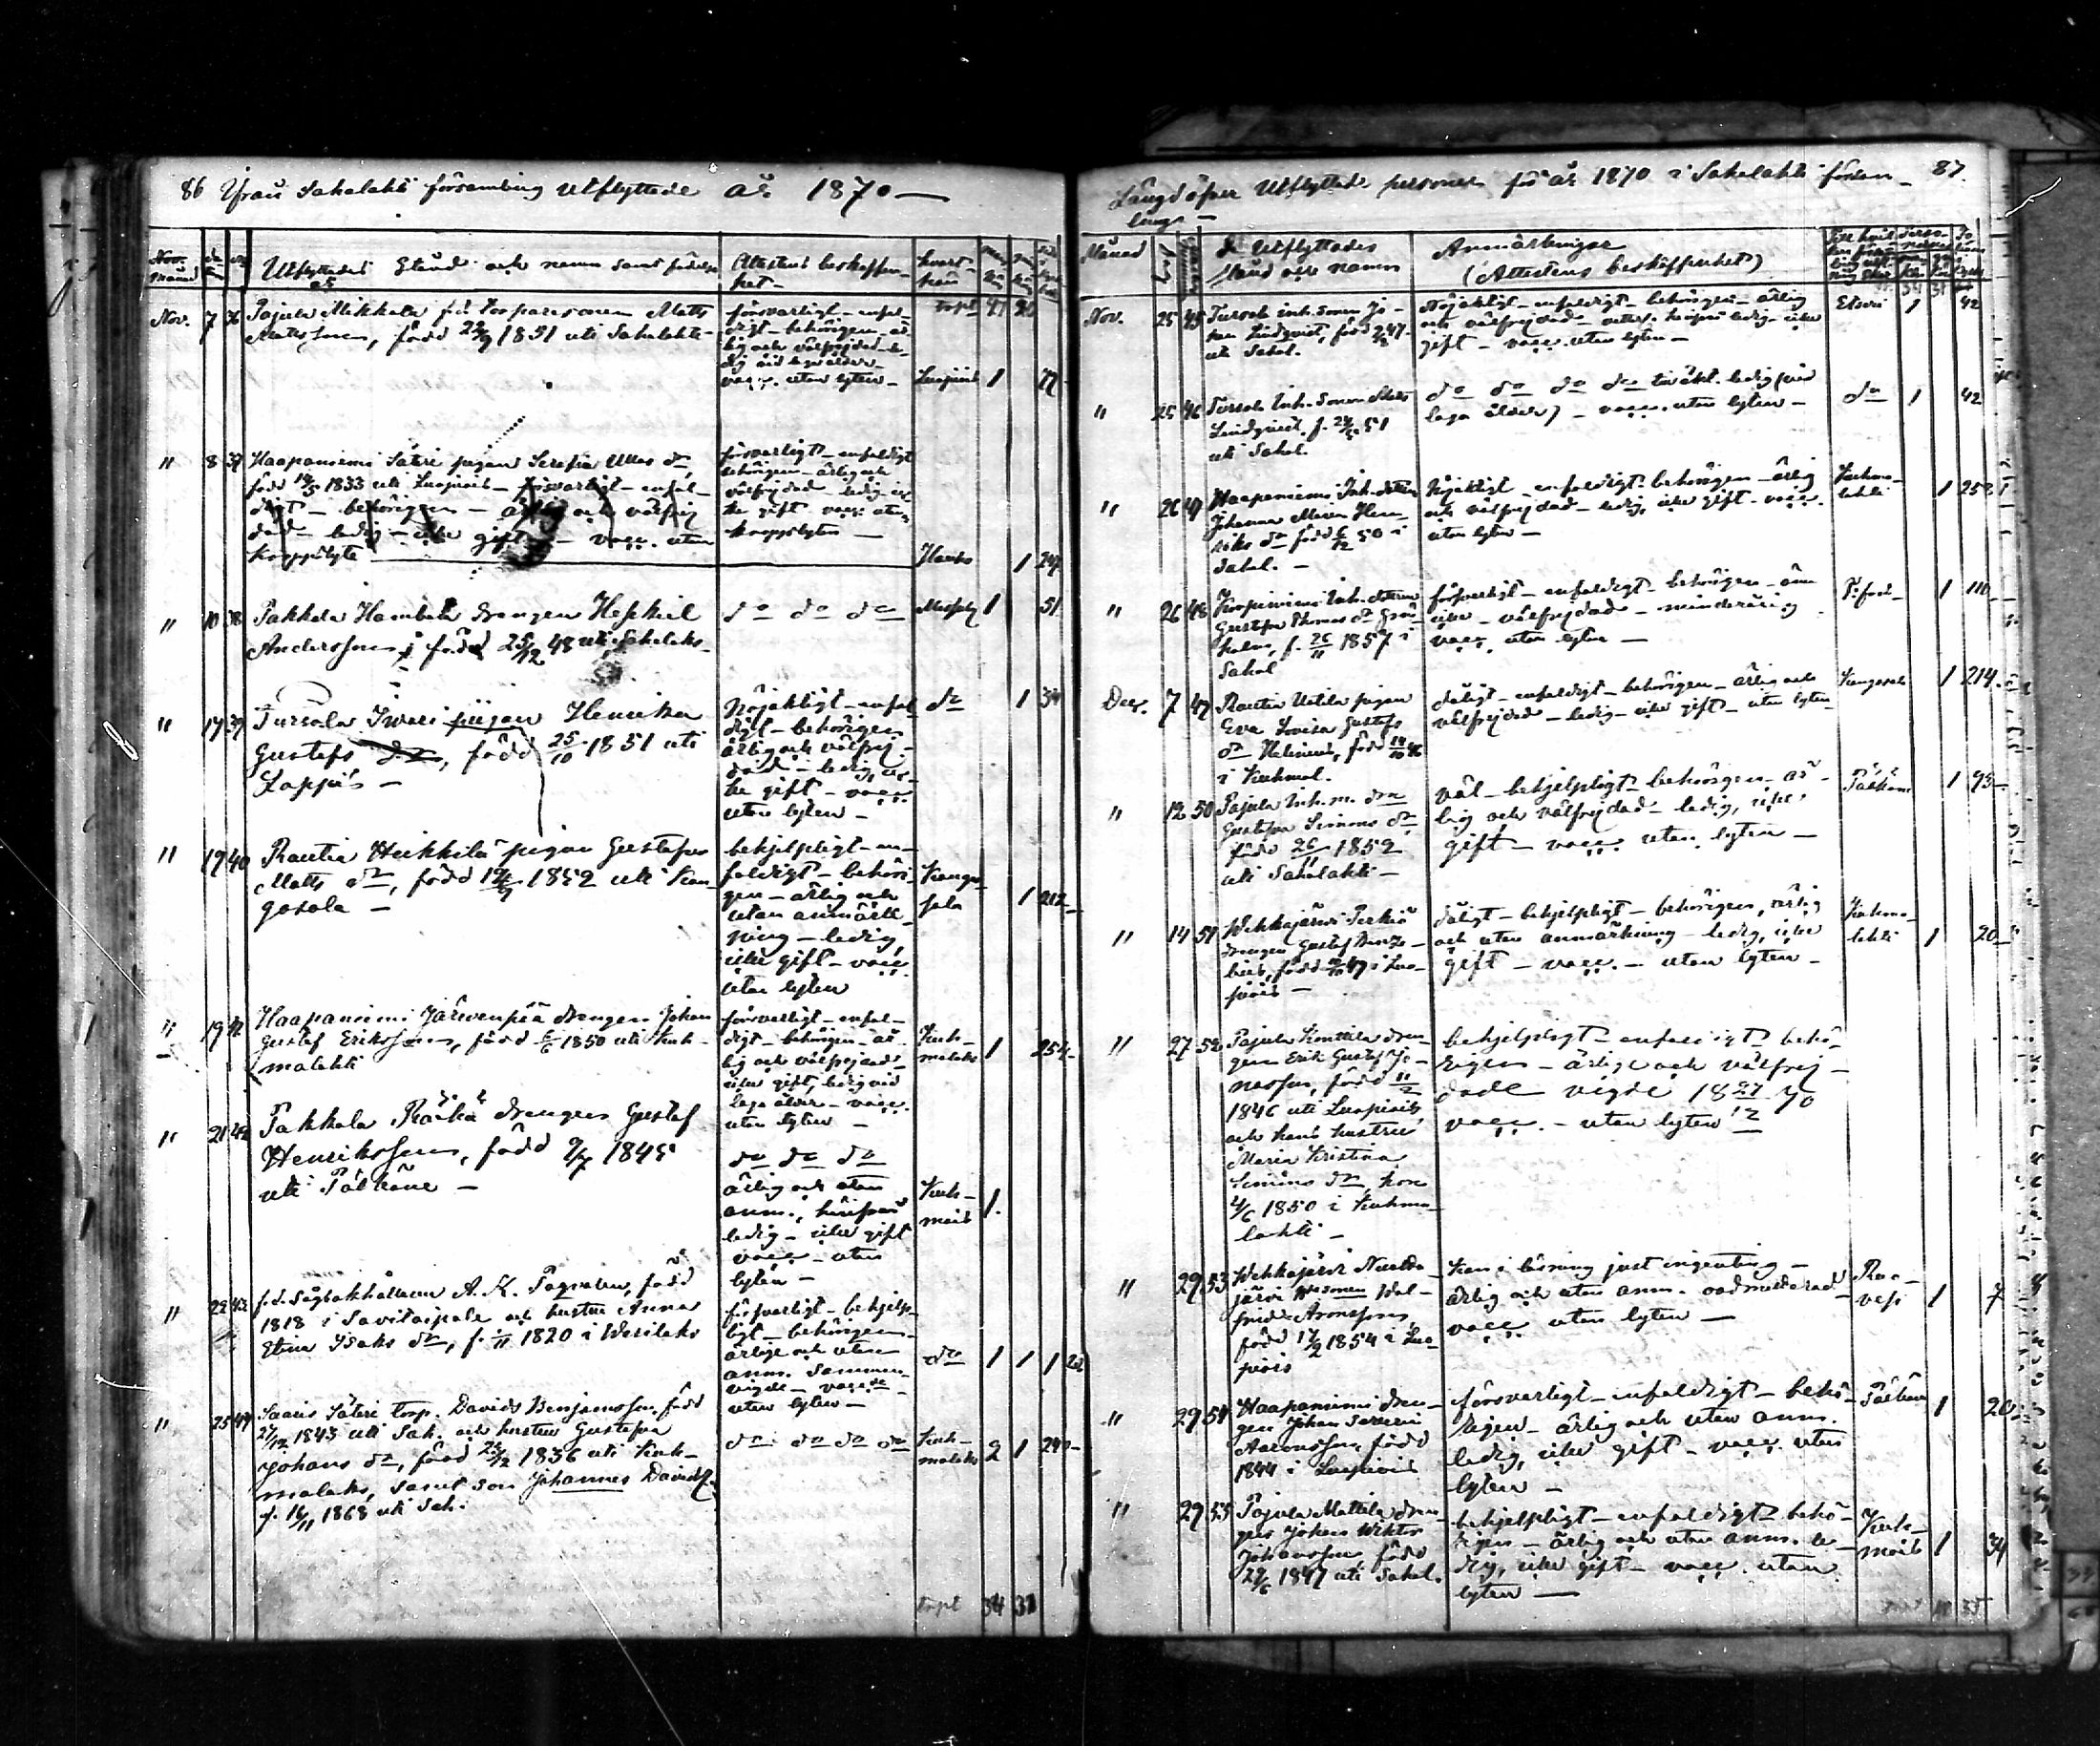 86 Ifrån Sahalahti församling utflyttade år 1870
Nov. månad
Utflyttades Stånd och namn samt födelse år
Attestens beskaffenhet
hvart
trpt
Nov. 7 36 Pajula Mikkola
Matts
Mattsson, född 1851 uti Sahalahti
försvarligt - enfal-
digt - behörigen - är-
lig och välfrejdad - le-
dig vid laga ålder -
vacc. utan lyten - Luopiois 1
" 8 37 Haapaniemi Säteri pigan Serafia
född 1833 uti Luopiois - försvarligt - enfal-
digt - behörigen - ärlig och välfrej
dad - ledig - icke gift - vacc. utan
kroppslyte
försvarligt - enfaldigt
behörigen - ärlig och
välfrejdad - ledig - ic
ke gift vacc. utan
kroppslyten
Hauho 1
" 10 38 Pakkala drengen Heskiel
Andersson, född 25/12 48 uti Sahalaks
do do do 1 51
" 17 39 Tursola Iwari pigan Henrika
Gustafs dr, född 25/10 1851 uti
Koppis
Nöjaktigt - enfal
digt - behörigen
ärlig och välfrej-
dad - ledig, ic-
ke gift - vacc.
utan lyten -
do 1 34
" 19 40 Rautia Heikkilä pigan Gustafva
Matts dr, född 1852 uti Kan
gasala -
behjelpligt - en-
faldigt - behöri-
gen - ärlig och
utan anmärk
ning - ledig,
icke gift - vacc.
utan lyten
Kanga
sala 1 212
" 19 41 Haapaniemi Järwenpää drengen Johan
Gustaf Eriksson, född 1850 uti Kuh-
malahti
försvarligt - enfal-
digt - behörigen - är-
lig och välfrejdad -
icke gift, ledig vid
laga ålder - vacc.
utan lyten -
Kuh-
malaks 1 254
" 21 42 Pakkala drengen Gustaf
Henriksson, född 1845
uti Pälkäne -
do do do
ärlig och utan
anm., hinfaren
ledig - icke gift
vacc - utan
lyten -
Kuh-
mois 1
" 22 43 f.d. A. K. född
1818 i Savitaipale och hustru Anna
Stina Isaks dr, f. 1820 i Wesilaks
försvarligt - behjelp-
ligt - behörigen
ärlige och utan
anm. Samman-
vigde - vacc.de -
utan lyten -
do 1 1 1
" 25 44 Saaris Säteri torp. David Benjamsson, född
27/12 1843 uti Sah. och hustru Gustafva
Johans dr, född 1836 uti Kuh-
malaks, samt son Johannes Davidss.
f. 16/11 1868 uti Sah.
do do do do Kuh-
malaks 2 1
trpt 34 38
Längd öfver Utflyttade personer för år 1870 i Sahalahti försam- 87
lings -
Månad
De utflyttades
stånd och namn
Anmärkningar
(Attestens beskaffenhet)
Nov. 25 45 Tursola inh. sonen Jo-
han Lindqvist, född
uti Sahal.
Nöjaktigt - enfaldigt - behörigen - ärlig
och välfrejdad - ledig - icke
gift - vacc. utan lyten -
Etseri 1 42
" 25 46 Tursola Inh. Sonen
Lindqvist, f. 51
uti Sahal.
do do do do ledig (vid
laga ålder) - vacc. utan lyten -
do 1 42
" 26 47 Haapaniemi Inh. dottern
Johanna Maria Hen-
riks dr född 6/12 50 i
Sahal. -
Nöjaktigt - enfaldigt - behörigen - ärlig
och välfrejdad - ledig, icke gift - vacc.
utan lyten -
Kuhma-
lahti 1 252
" 26 48 Inh. dottern
Gustafva Thomas dr Grön
holm, f. 26/11 1857 i
Sahal
försvarligt - enfaldigt - behörigen - än
icke - välfrejdad - minderårig
vacc. utan lyten -
1 110
Dec. 7 49 Rautia Uotila pigan
Eva Lovisa Gustafs
dr Helenius, född 46
i Kuhmal.
dåligt - enfaldigt - behörigen - ärlig och
välfrejdad - ledig - icke gift - utan lyten
Kangasala 1 214
" 12 50 Pajula Inh. m. dr
Gustafva Simons dr
född 26 1852
uti Sahalahti -
väl - behjelpligt - behörigen - är-
lig och välfrejdad - ledig, icke
gift - vacc. utan lyten -
Pälkäne 1 95
" 14 51 Wehkajärvi Perkiö
drengen Gustaf
född 47 i Luo-
piois -
dåligt - behjelpligt - behörigen, ärlig
och utan anmärkning - ledig, icke
gift - vacc. - utan lyten -
Kuhma-
lahti 1 20
" 27 52 Pajula Kouttila dren
gen Erik Gustaf Jo-
nasson, född 11/2
1846 uti Luopiois
och hans hustru
Maria Kristina
Simons dr, hon
4/6 1850 i Kuhma-
lahti -
behjelpligt - enfaldigt - behö-
rigen - ärlige och välfrej-
dade vigde 18 27/12 70
vacc. - utan lyten
" 29 53 Wehkajärvi
järvi sonen Wal-
frid Aronsson,
född 1854 i Luo
piois
kan i läsning just ingenting -
ärlig och utan anm. oadmitterad -
vacc. utan lyten -
Ruo-
vesi 1 7
" 29 54 Haapaniemi dren-
gen Johan Severin
Aaronsson, född
1844 i Luopiois
försvarligt - enfaldigt - behö-
rigen - ärlig och utan anm.
ledig, icke gift - vacc. utan
lyten -
Pälkäne 1 20
" 29 55 Pajula Mattila dren
gen Johan Wiktor
Johansson, född
29/6 1847 uti Sahal.
behjelpligt - enfaldigt - behö-
rigen - ärlig och utan anm. le-
dig, icke gift - vacc. utan
lyten -
Kuh-
mois 1 34